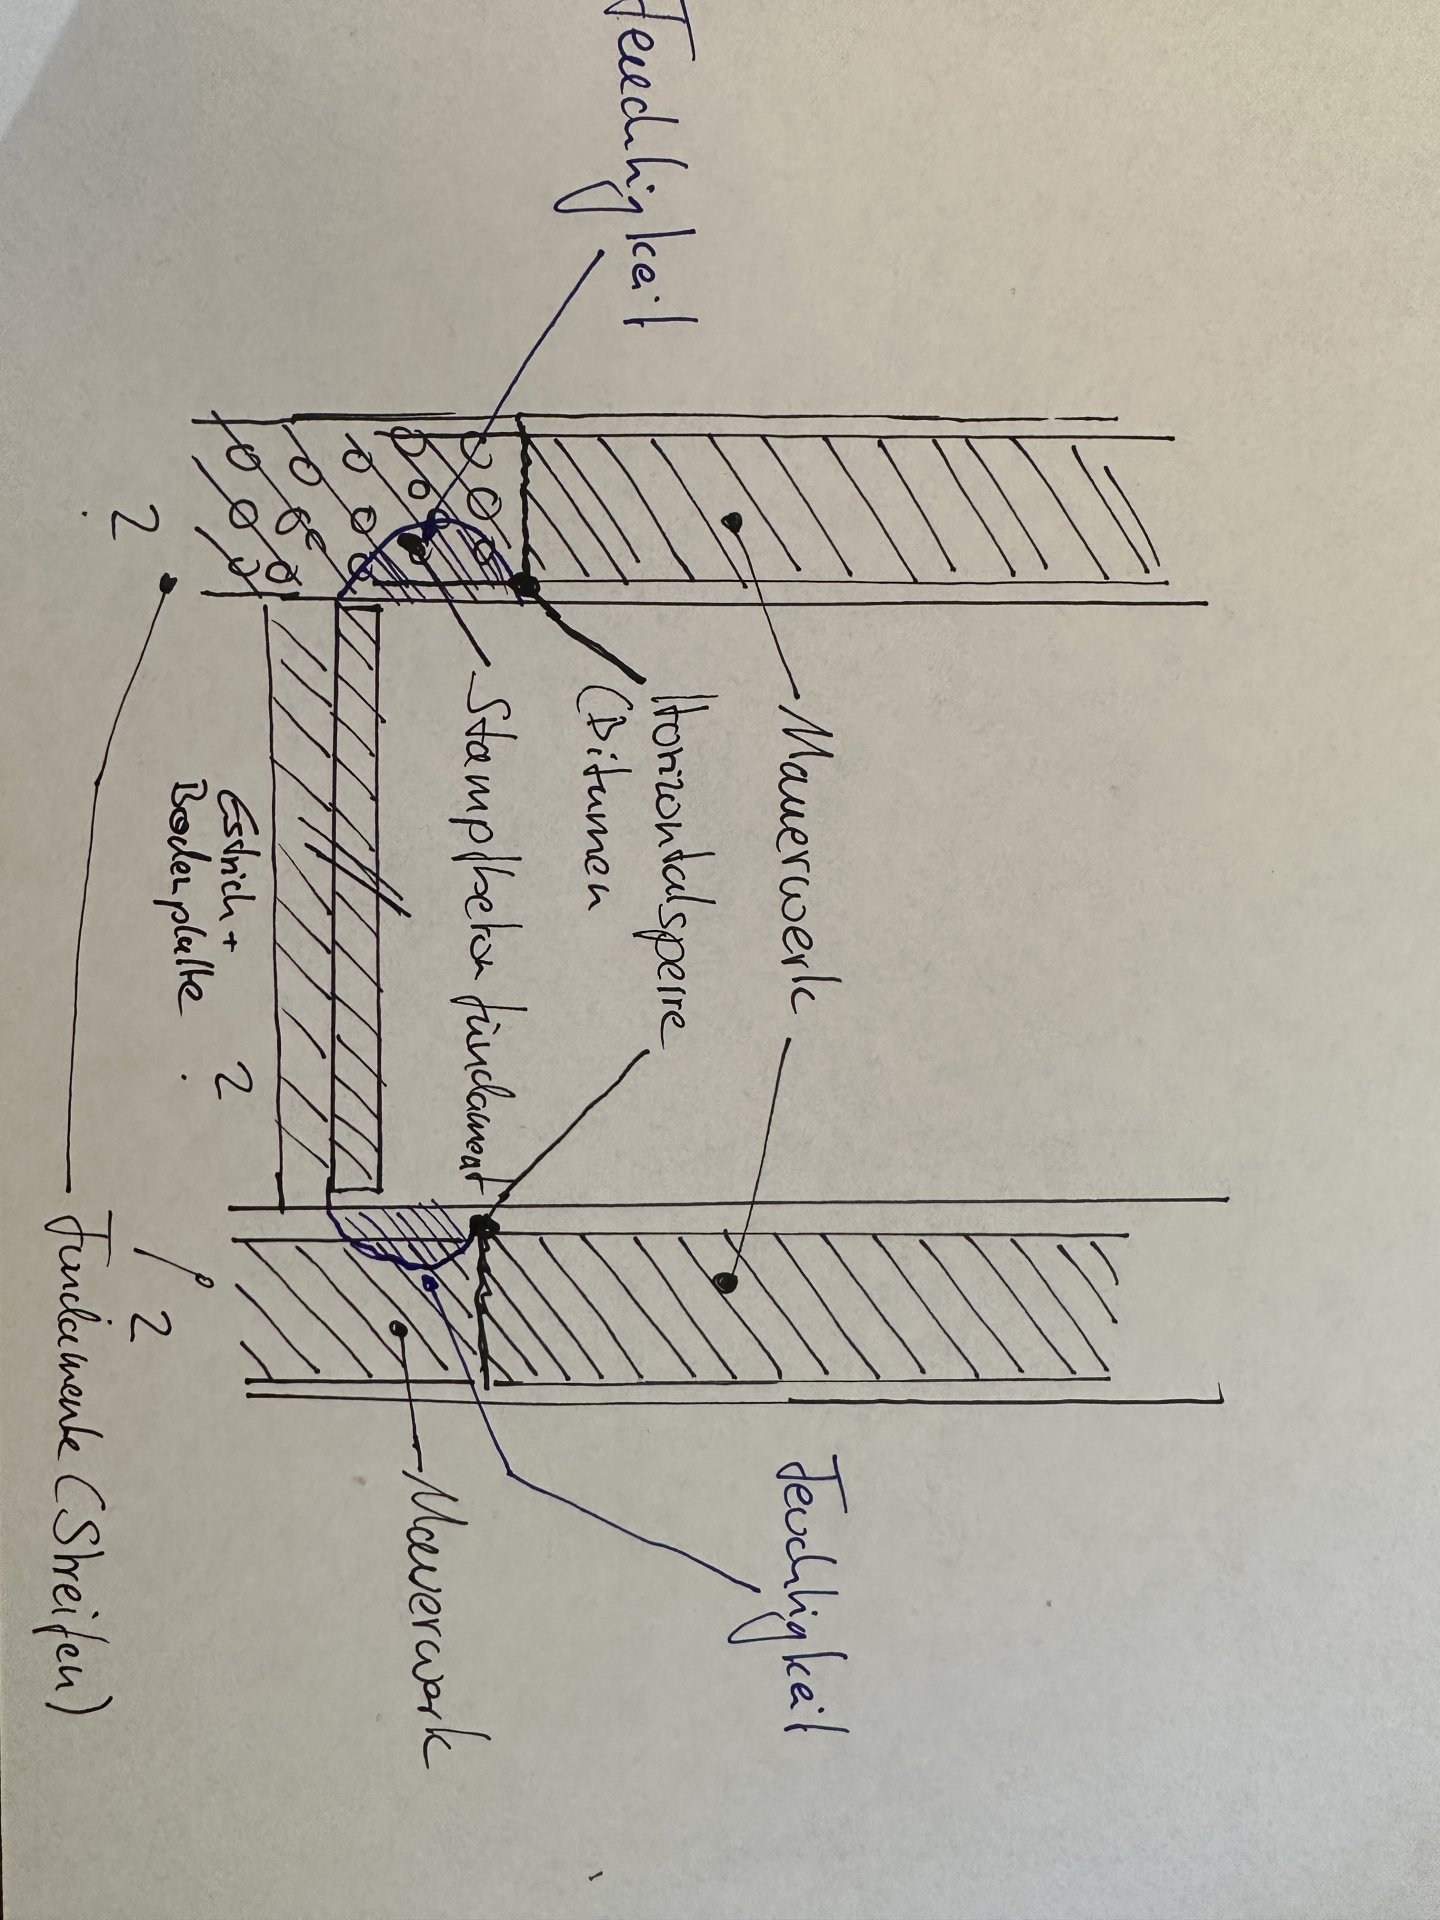 Feuchtigkeit
Mauerwerk
Feuchtigkeit
Horizontalsperre
(Bitumen
Stampfbeton fundament
Mauerwerk
?
Estrich +
Bodenplatte ?
?
Fundamente (Streifen)